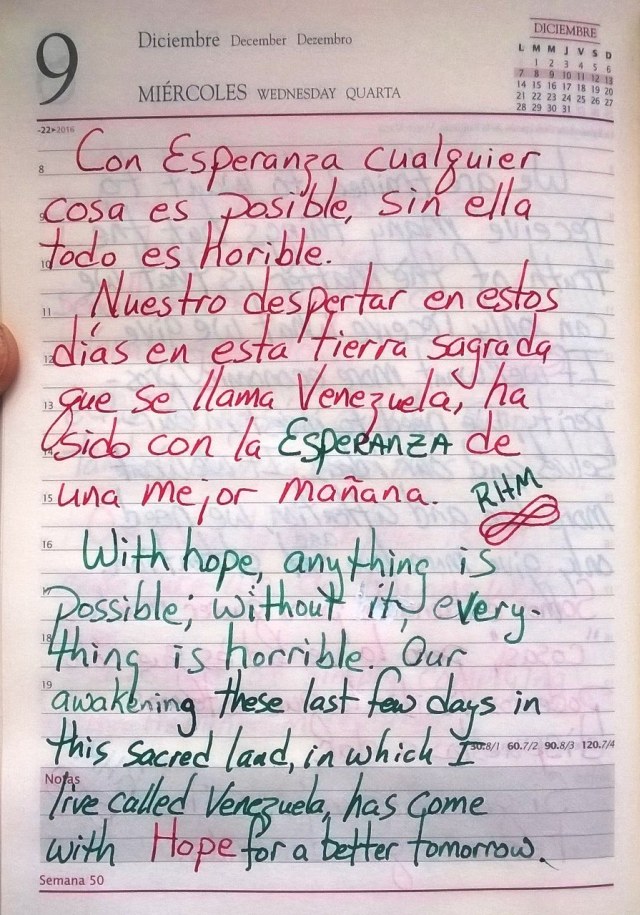 9
Diciembre December Dezembro
MIÉRCOLES WEDNESDAY QUARTA
DICIEMBRE
L M M J V S D
1 2 3 4 5 6
7 8 9 10 11 12 13
14 15 16 17 18 19 20
21 22 23 24 25 26 27
28 29 30 31
-22>2016
8 Con Esperanza cualquier
9 cosa es posible, sin ella
10 todo es Horible.
11 Nuestro despertar en estos
12 días en esta tierra sagrada
13 que se llama Venezuela, ha
14 sido con la ESPERANZA de
15 una mejor mañana. RHM
16 With hope, anything is
17 possible; without it, every-
18 thing is horrible. Our
19 awakening these last few days in
this sacred land, in which I
30.8/1 60.7/2 90.8/3 120.7/4
Notas
live called Venezuela, has come
with Hope for a better tomorrow.
Semana 50